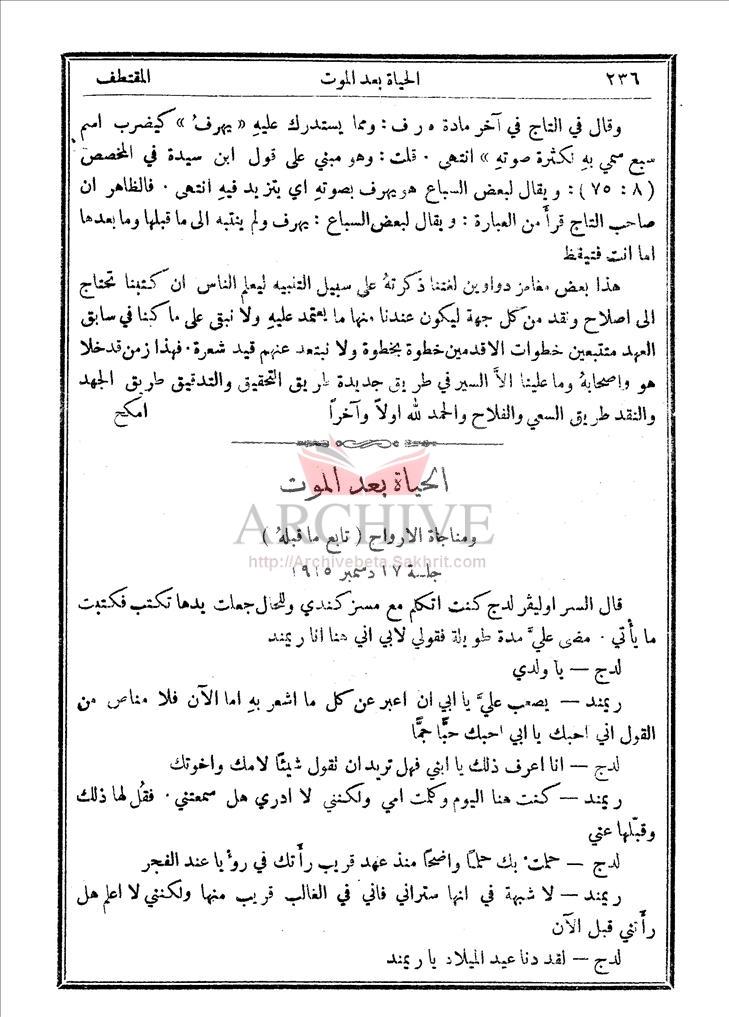 ٢٣٦ الحياة بعد الموت المقتطف
وقال في التاج في آخر مادة ه ر ف : ومما يستدرك عليهِ « يهرفُ » كيضرب اسم
سبع سمي بهِ لكثرة صوتهِ » انتهى . قلت : وهو مبني على قول ابن سيدة في المخصص
( ٨ : ٧٥ ) : و يقال لبعض السباع هو يهرف بصوتهِ اي يتزيد فيهِ انتهى . فالظاهر ان
صاحب التاج قرأ من العبارة : و يقال لبعض السباع : يهرف ولم ينتبه الى ما قبلها وما بعدها
اما انت فتيقظ
هذا بعض مغامز دواوين لغتنا ذكرتهُ على سبيل التنبيه ليعلم الناس ان كتبنا تحتاج
الى اصلاح ونقد من كل جهة ليكون عندنا منها ما يعتمد عليهِ ولا نبقى على ما كنا في سابق
العهد متتبعين خطوات الاقدمين خطوة بخطوة ولا نبتعد عنهم قيد شعرة . فهذا زمن قد خلا
هو واصحابهُ وما علينا الاَّ السير في طريق جديدة طريق التحقيق والتدقيق طريق الجهد
والنقد طريق السعي والفلاح والحمد لله اولاً وآخراً امكح
الحياة بعد الموت
ARCHIVE
ومناجاة الارواح ( تابع ما قبلهُ )
http://Archivebeta.Sakhrit.com
جلسة ١٧ دسمبر ١٩١٥
قال السر اوليڤر لدج كنت اتكلم مع مسز كندي وللحال جعلت يدها تكتب فكتبت
ما يأتي . مضى عليَّ مدة طويلة فقولي لابي اني هنا انا ريمند
لدج — يا ولدي
ريمند — يصعب عليَّ يا ابي ان اعبر عن كل ما اشعر بهِ اما الآن فلا مناص من
القول اني احبك يا ابي احبك حبًّا جمًّا
لدج — انا اعرف ذلك يا ابني فهل تريد ان تقول شيئًا لامك واخوتك
ريمند — كنت هنا اليوم وكلمت امي ولكنني لا ادري هل سمعتني . فقُل لها ذلك
وقبّلها عني
لدج — حلمتْ بك حلمًا واضحًا منذ عهد قريب رأَتك في رؤيا عند الفجر
ريمند — لا شبهة في انها ستراني فاني في الغالب قريب منها ولكنني لا اعلم هل
رأَتني قبل الآن
لدج — لقد دنا عيد الميلاد يا ريمند